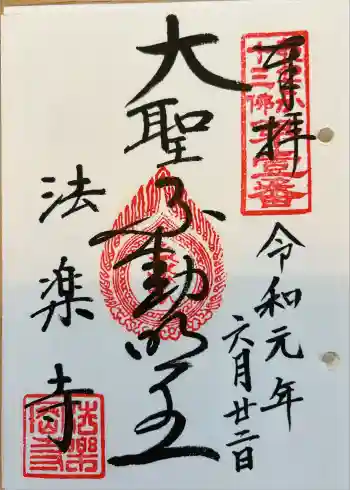 奉拝
十三佛第壹番
令和元年
六月廿二日
大聖不動明王
法楽寺